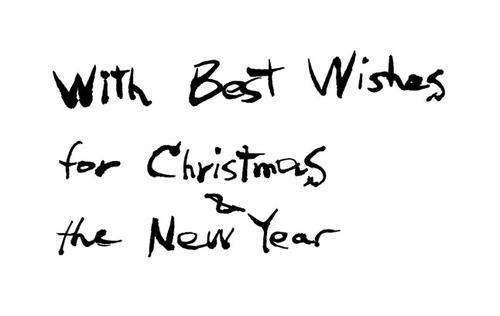 With Best Wishes
for Christmas
&
the New Year